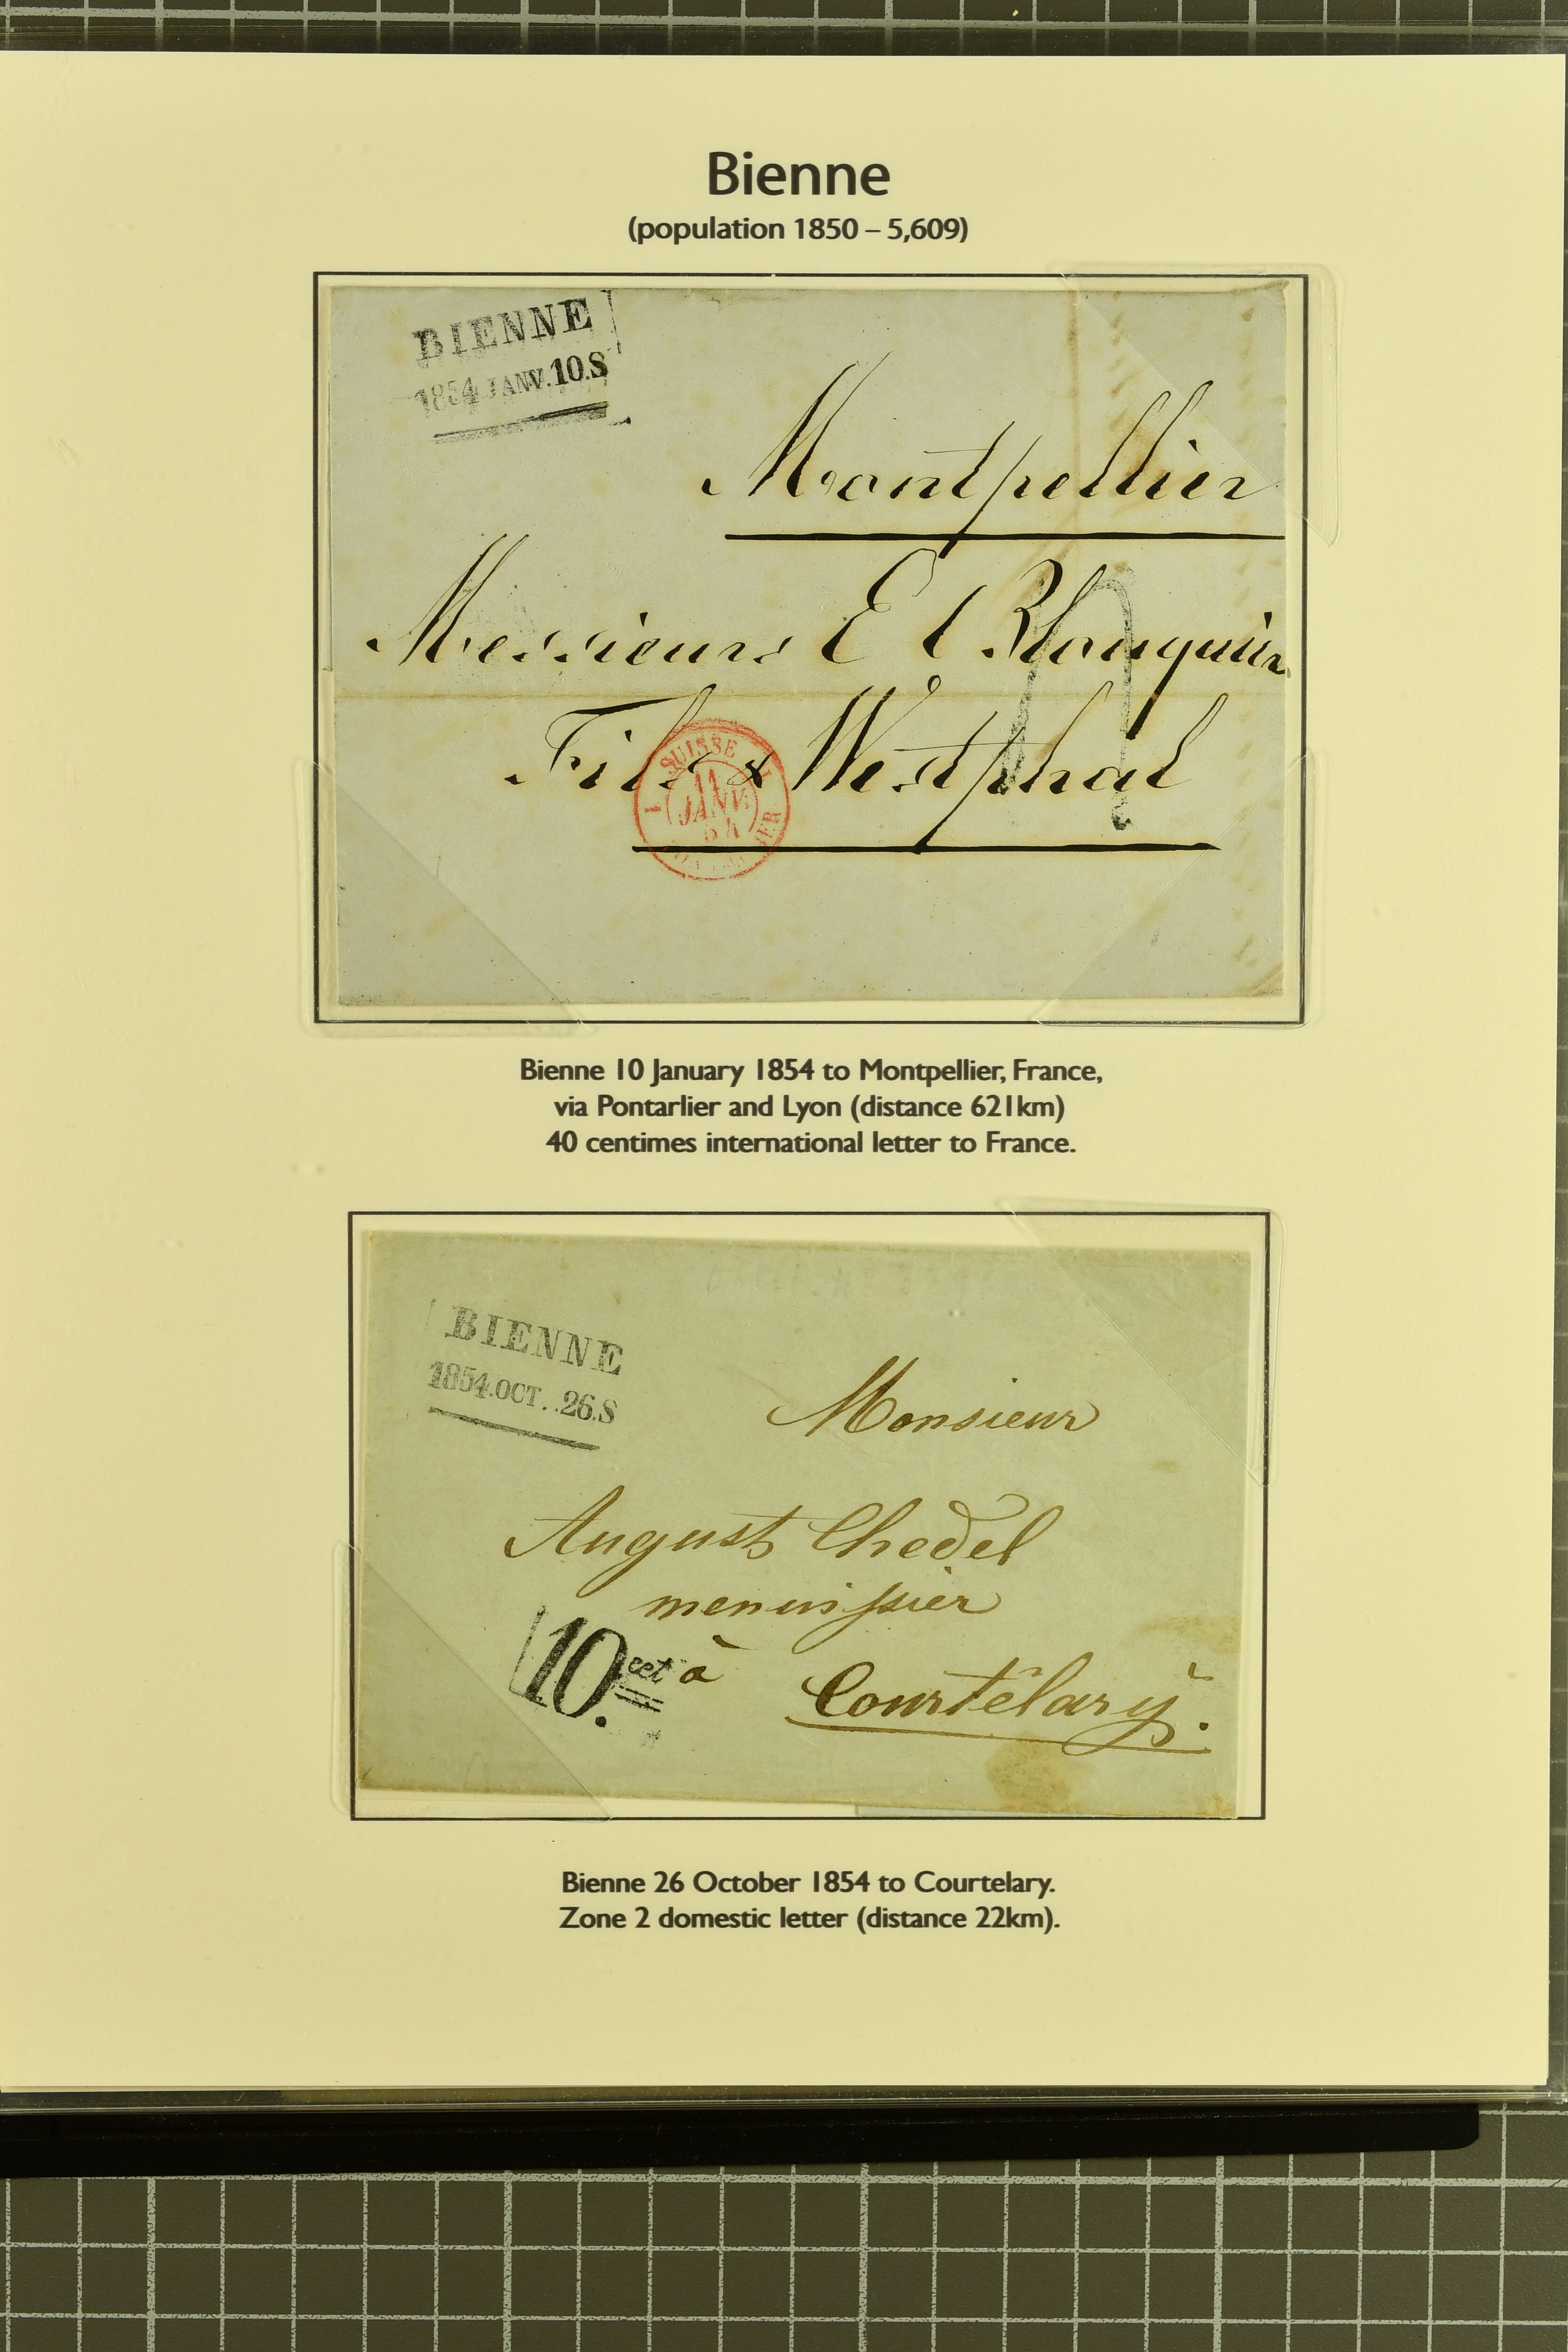 Bienne
(population 1850 – 5,609)
BIENNE
1854 JANV. 10.S
Montpellier
Messieurs E
Fils & Westphal
SUISSE
11
JANV.
54
Bienne 10 January 1854 to Montpellier, France,
via Pontarlier and Lyon (distance 621km)
40 centimes international letter to France.
BIENNE
1854.OCT. .26.S
Monsieur
August Chedel
menuissier
10. cet à Courtelary.
Bienne 26 October 1854 to Courtelary.
Zone 2 domestic letter (distance 22km).